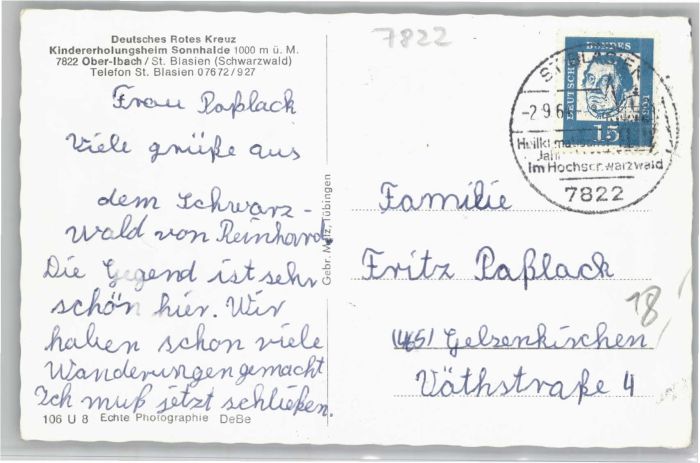 Deutsches Rotes Kreuz
Kindererholungsheim Sonnhalde 1000 m ü. M.
7822 Ober-Ibach / St. Blasien (Schwarzwald)
Telefon St. Blasien 07672/927
7822
Frau Paßlack
Viele grüße aus
dem Schwarz-
wald von Reinhard
Die Gegend ist sehr
schön hier. Wir
haben schon viele
Wanderungen gemacht
Ich muß jetzt schließen.
106 U 8 Echte Photographie DeBe
Gebr. Metz, Tübingen
DEUTSCHE BUNDES
15
ST. BLASIEN
-2.9.6
im Hochschwarzwald
7822
Familie
Fritz Paßlack
465 Gelsenkirchen
Väthstraße 4
18,